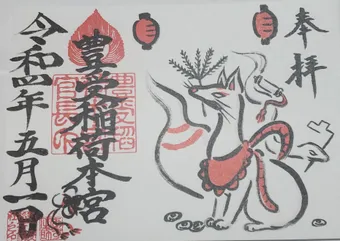 奉拝
豊受稲荷本宮
令和四年五月一日